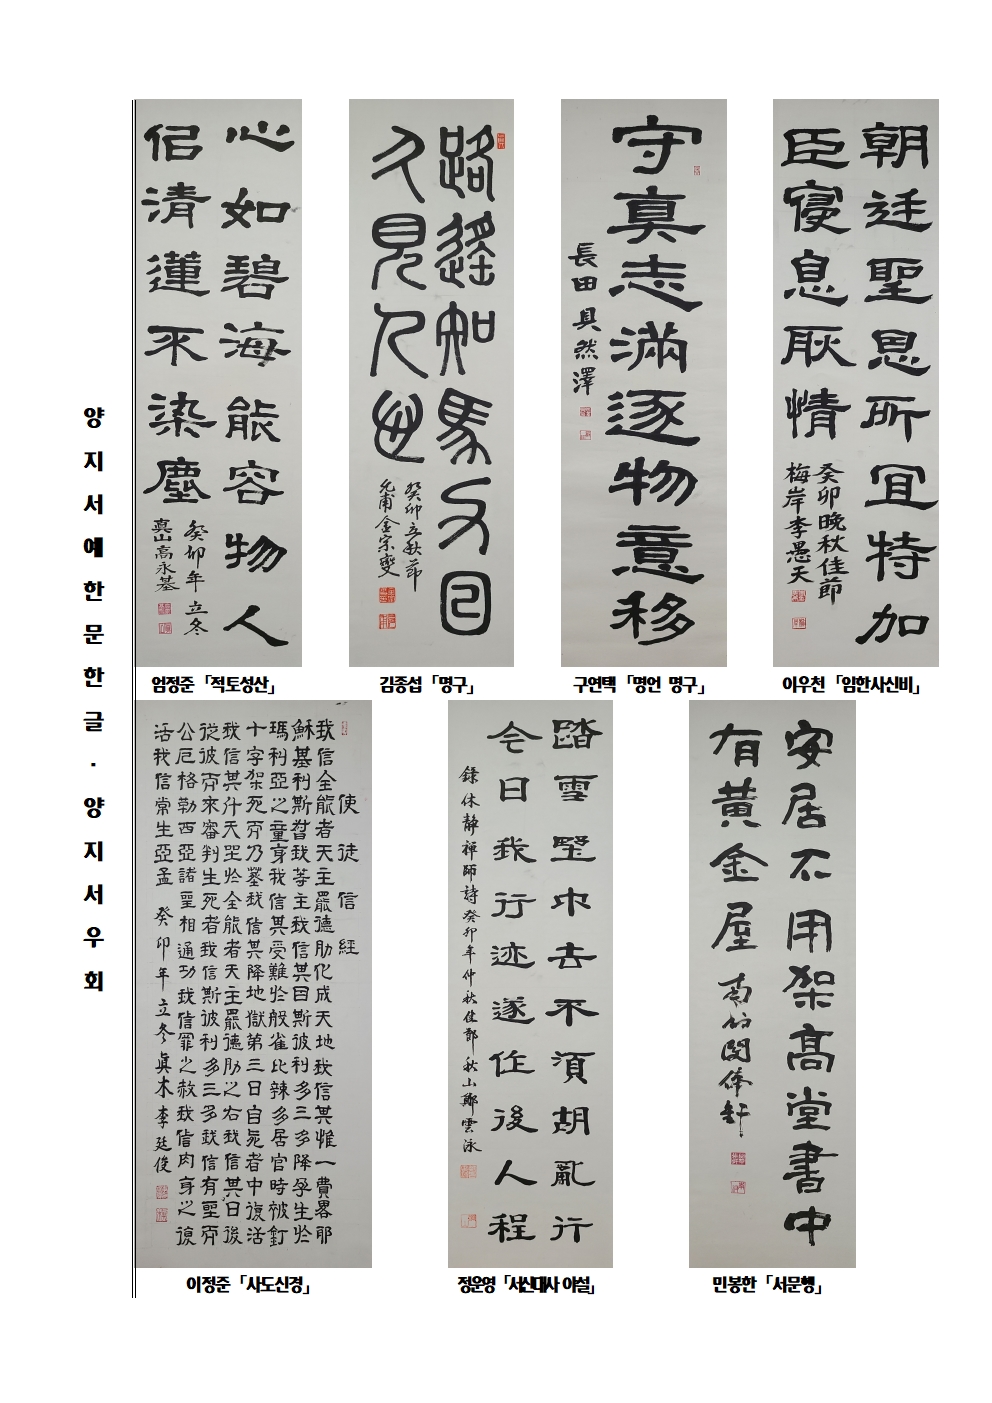 양지서예한문한글 · 양지서우회
心如碧海能容物人
侶清蓮不染塵
癸卯年立冬
真山高永基
엄정준 「적토성산」
路遙知馬力日
久見人心
癸卯立秋節
允甫金宗燮
김종섭 「명구」
守真志滿逐物意移
長田具然澤
구연택 「명언 명구」
朝廷聖恩所宜特加
臣寢息耿情
癸卯晚秋佳節
梅岸李愚天
이우천 「임한사신비」
使徒信經
我信全能者天主罷德肋化成天地我信其惟一費畧耶
穌基利斯督我等主我信其因斯彼利多三多降孕生於
瑪利亞之童身我信其受難於般雀比辣多居官時被釘
十字架死而乃葬我信其降地獄第三日自死者中復活
我信其升天坐於全能者天主罷德肋之右我信其日後
從彼而來審判生死者我信斯彼利多三多我信有聖而
公厄格勒西亞諸聖相通功我信罪之赦我信肉身之復
活我信常生亞孟 癸卯年立冬 眞木李廷俊
이정준 「사도신경」
踏雪野中去不須胡亂行
今日我行迹遂作後人程
錄休靜禪師詩癸卯年仲秋佳節秋山鄭雲泳
정운영 「서산대사 야설」
安居不用架高堂書中
有黃金屋
민봉한 「서문행」